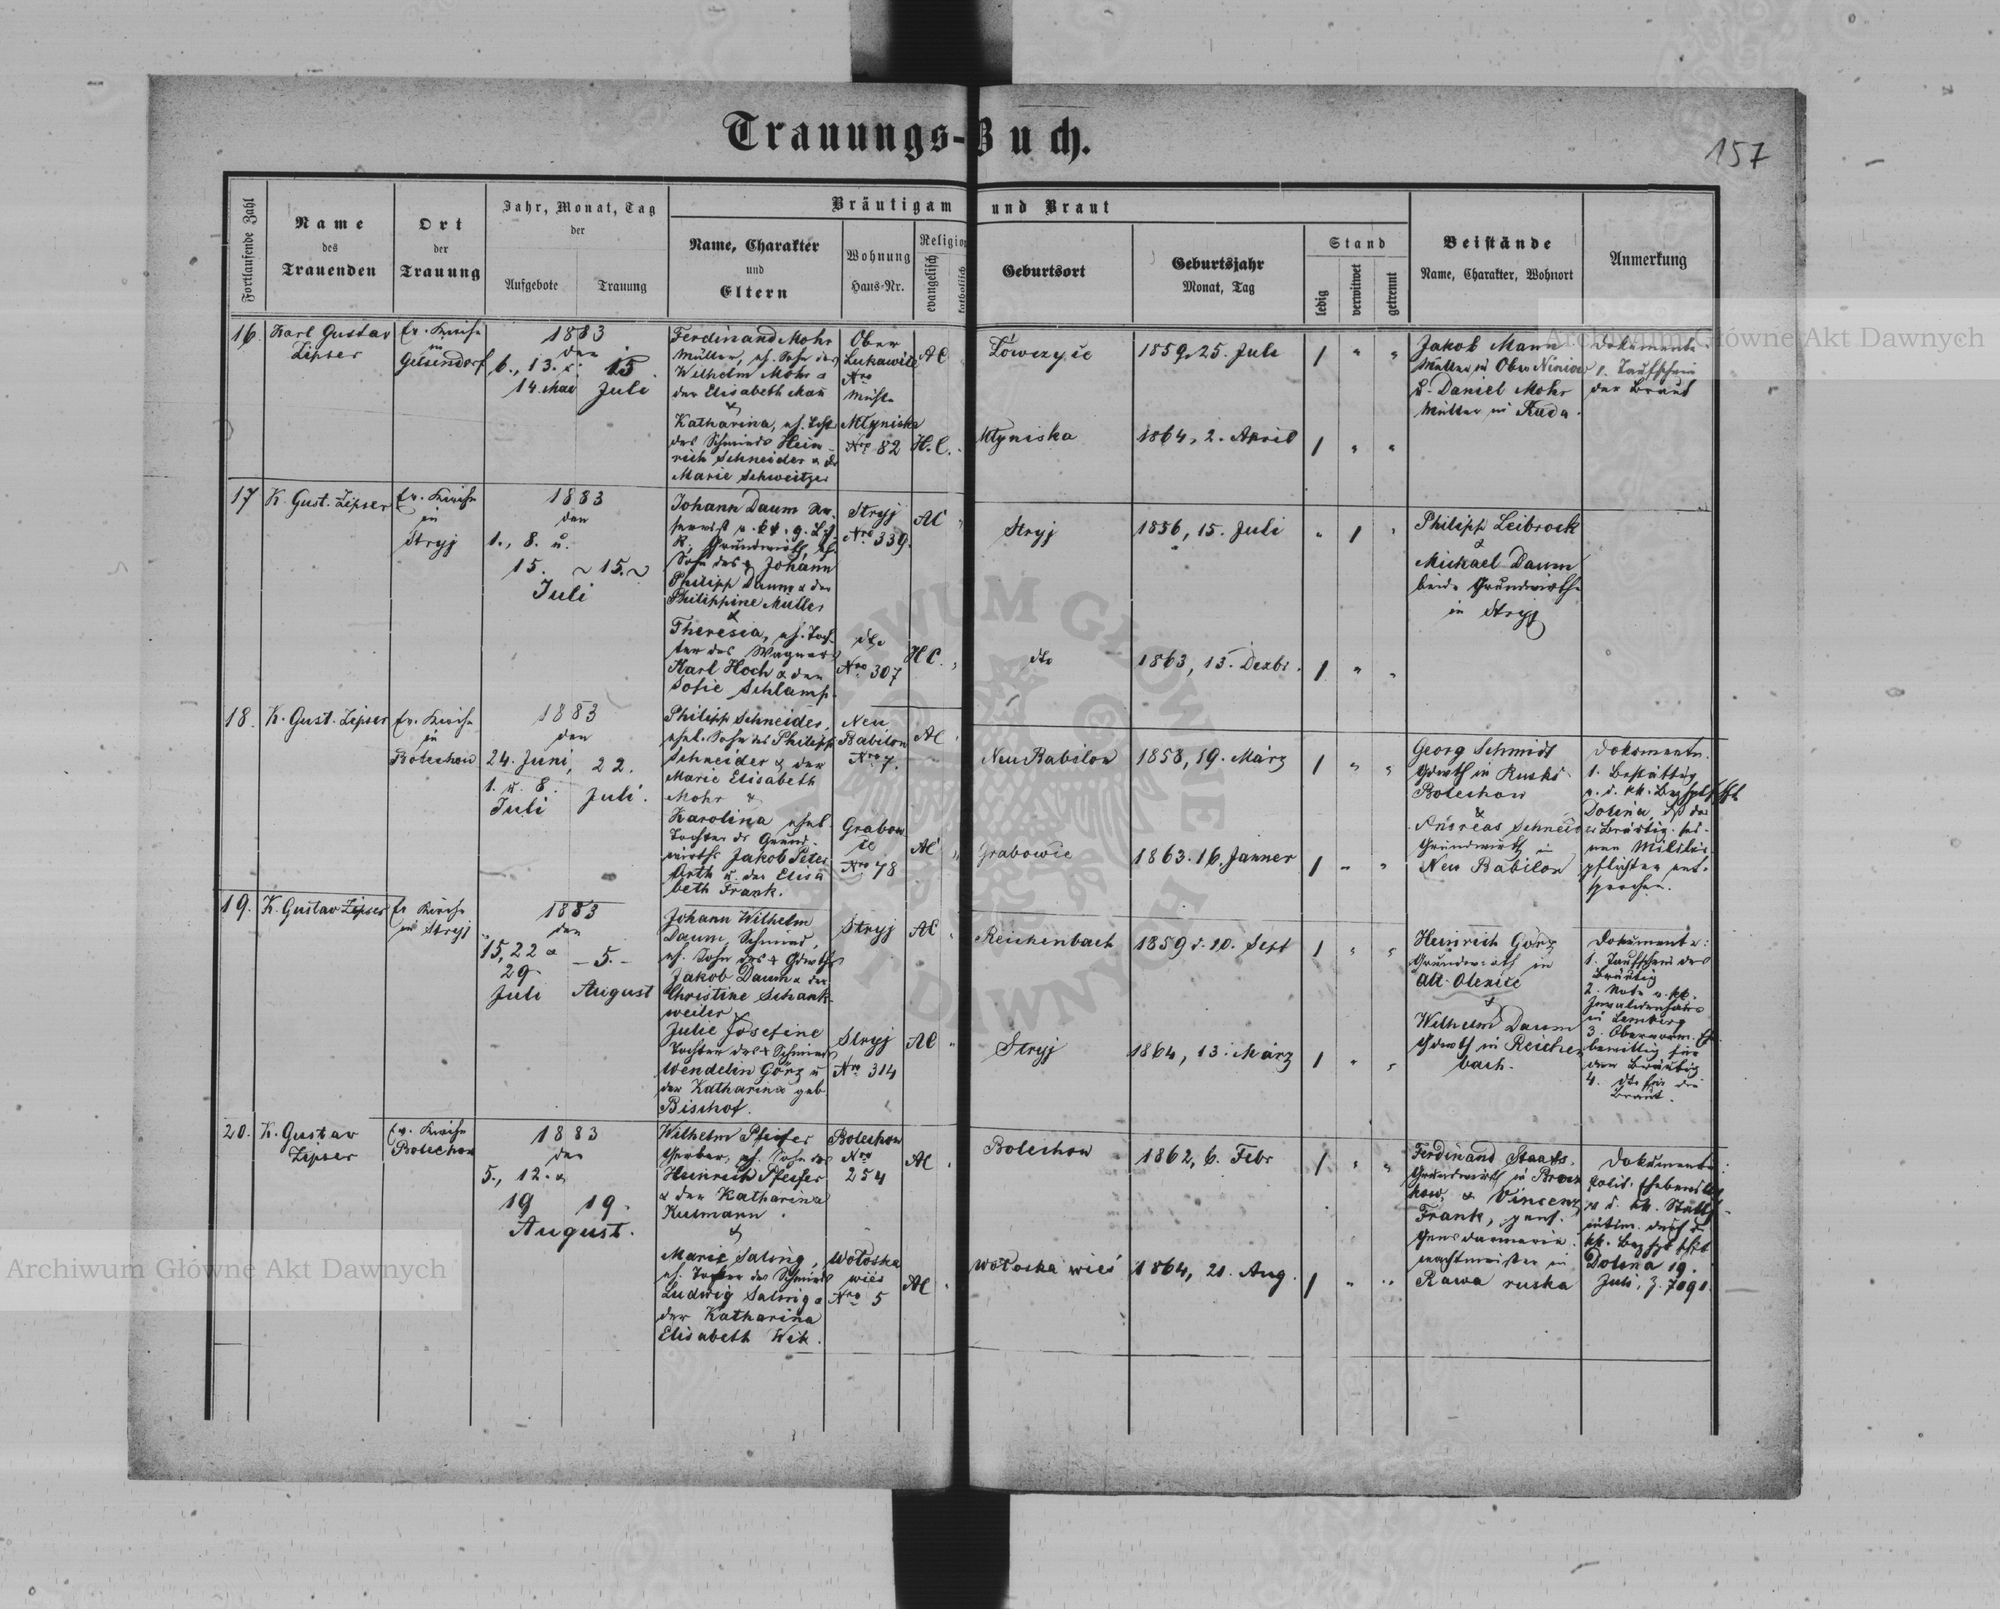 Trauungs-Buch.
157
Fortlaufende Zahl
Name
des
Trauenden
Ort
der
Trauung
Jahr, Monat, Tag
der
Aufgebote
Trauung
Bräutigam und Braut
Name, Charakter
und
Eltern
Wohnung
Haus-Nr.
Religion
evangelisch
katholisch
Geburtsort
Geburtsjahr
Monat, Tag
Stand
ledig
verwitwet
getrennt
Beistände
Name, Charakter, Wohnort
Anmerkung
16.
Karl Gustav
Zipser
Ev. Kirche
in
Gelsendorf
1883
den
6., 13. u.
14. Mai
15
Juli
Ferdinand Mohr
Müller, eh. Sohn des
Wilhelm Mohr u
der Elisabeth Man
&
Katharina, eh. Tcht
des Schmieds Hein-
rich Schneider u der
Marie Schweitzer
Ober
Lukawice
Nro
Mühle
Mlyniska
Nro 82
AC
H.C.
Łowczyce
1859, 25. Juli
Mlyniska
1864, 2. April
Jakob Mann
Müller in Ober Niniow
u. Daniel Mohr
Müller in Ruda.
Dokumente:
1. Taufschein
der Braut
17
K. Gust. Zipser
Ev. Kirche
in
Stryj
1883
den
1., 8. u.
15. ~15.~
Juli
Johann Daum
Grundwirth, eh.
Sohn des + Johann
Philipp Daum u der
Philippine Müller
&
Theresia, eh. Toch-
ter des Wagners
Karl Hoch u der
Sofie Schlamp.
Stryj
Nro 339.
dto
Nro 307
AC
HC.
Stryj
1856, 15. Juli
dto
1863, 13. Dezbr.
Philipp Leibrock
&
Michael Daum
beide Grundwirthe
in Stryj
18.
K. Gust. Zipser
Ev. Kirche
in
Bolechow
1883
den
24. Juni,
1. u. 8.
Juli
22.
Juli.
Philipp Schneider,
ehel. Sohn des Philipp
Schneider u der
Marie Elisabeth
Mohr &
Karolina ehel.
Tochter des Grund-
wirths Jakob Peter
Orth u. der Elisa
beth Frank.
Neu
Babilon
Nro 7.
Grabow
ce
Nro 78
AC
AC
Neu Babilon
1858, 19. März
Grabowce
1863. 16. Janner
Georg Schmidt
Gdwth in Ruski
Bolechow
&
Andreas Schneid
Grundwirth in
Neu Babilon
Dokumente.
1. Bestättig
Dolina, daß der
Bräutig. sei-
nen Militär-
pflichten ent-
sprochen.
19.
K. Gustav Zipser
Ev Kirche
in Stryj
1883
den
15, 22 u
29
Juli
- 5. -
August
Johann Wilhelm
Daum, Schmied,
eh. Sohn des + Gdwths
Jakob Daum u der
Christine Schank-
weiler &
Julie Josefine
Tochter des + Schmieds
Wendelin Görz u
der Katharina geb
Bischof.
Stryj
Stryj
Nro 314
AC
AC
Reichenbach
1859 d. 20. Sept
Stryj
1864, 13. März
Heinrich Görz
Grundwirth in
Alt Olexice
&
Wilhelm Daum
Gdwth in Reichen
bach.
Dokumente:
1. Taufschein des
Bräutig
2. Note v. kk.
Invalidenhaus
in Lemberg
3. Obervorm.
bewillig für
den Bräutig
4. dto für die
Braut.
20.
K. Gustav
Zipser
Ev. Kirche
Bolechow
1883
den
5., 12. u
19 19.
August.
Wilhelm Pfeifer
Gerber, eh. Sohn des
Heinrich Pfeifer
u der Katharina
Kulmann.
&
Marie Saling,
eh. Tochter des Schmieds
Ludwig Saling u
der Katharina
Elisabeth Wik.
Bolechow
Nro
254
Wołoska
wieś
Nro 5
AC
AC
Bolechow
1862, 6. Febr
Wołoska wieś
1864, 21. Aug.
Ferdinand Staats,
Grundwirth in
& Vincenz
Frank, pens.
Gendarmerie
wachtmeister in
Rawa ruska
Dokumente:
Dolina 19.
Juli, Z. 7090.
Archiwum Główne Akt Dawnych
Archiwum Główne Akt Dawnych
ARCHIWUM GŁÓWNE AKT DAWNYCH